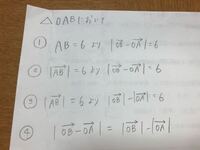 △OABにおいて
① AB=6より |OB→-OA→|=6
② |AB→|=6より |OB→-OA→|=6
③ |AB→|=6より |OB→|-|OA→|=6
④ |OB→-OA→|=|OB→|-|OA→|